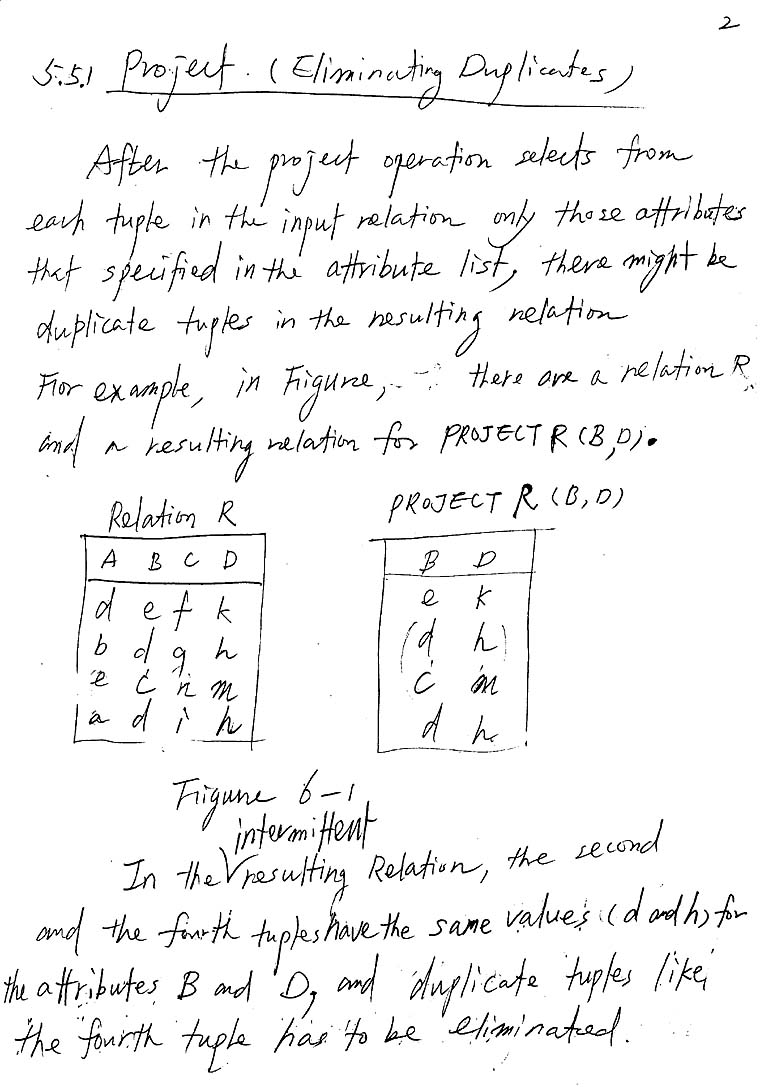 2
5.5.1 Project. (Eliminating Duplicates)
After the project operation selects from
each tuple in the input relation only those attributes
that specified in the attribute list, there might be
duplicate tuples in the resulting relation
For example, in Figure, there are a relation R
and a resulting relation for PROJECT R (B,D).
Relation R
A B C D
d e f k
b d g h
e c n m
a d i h
PROJECT R (B,D)
B D
e k
(d h)
c m
d h
Figure 6-1
intermittent
In the resulting Relation, the second
and the fourth tuples have the same values (d and h) for
the attributes B and D, and duplicate tuples like
the fourth tuple has to be eliminated.